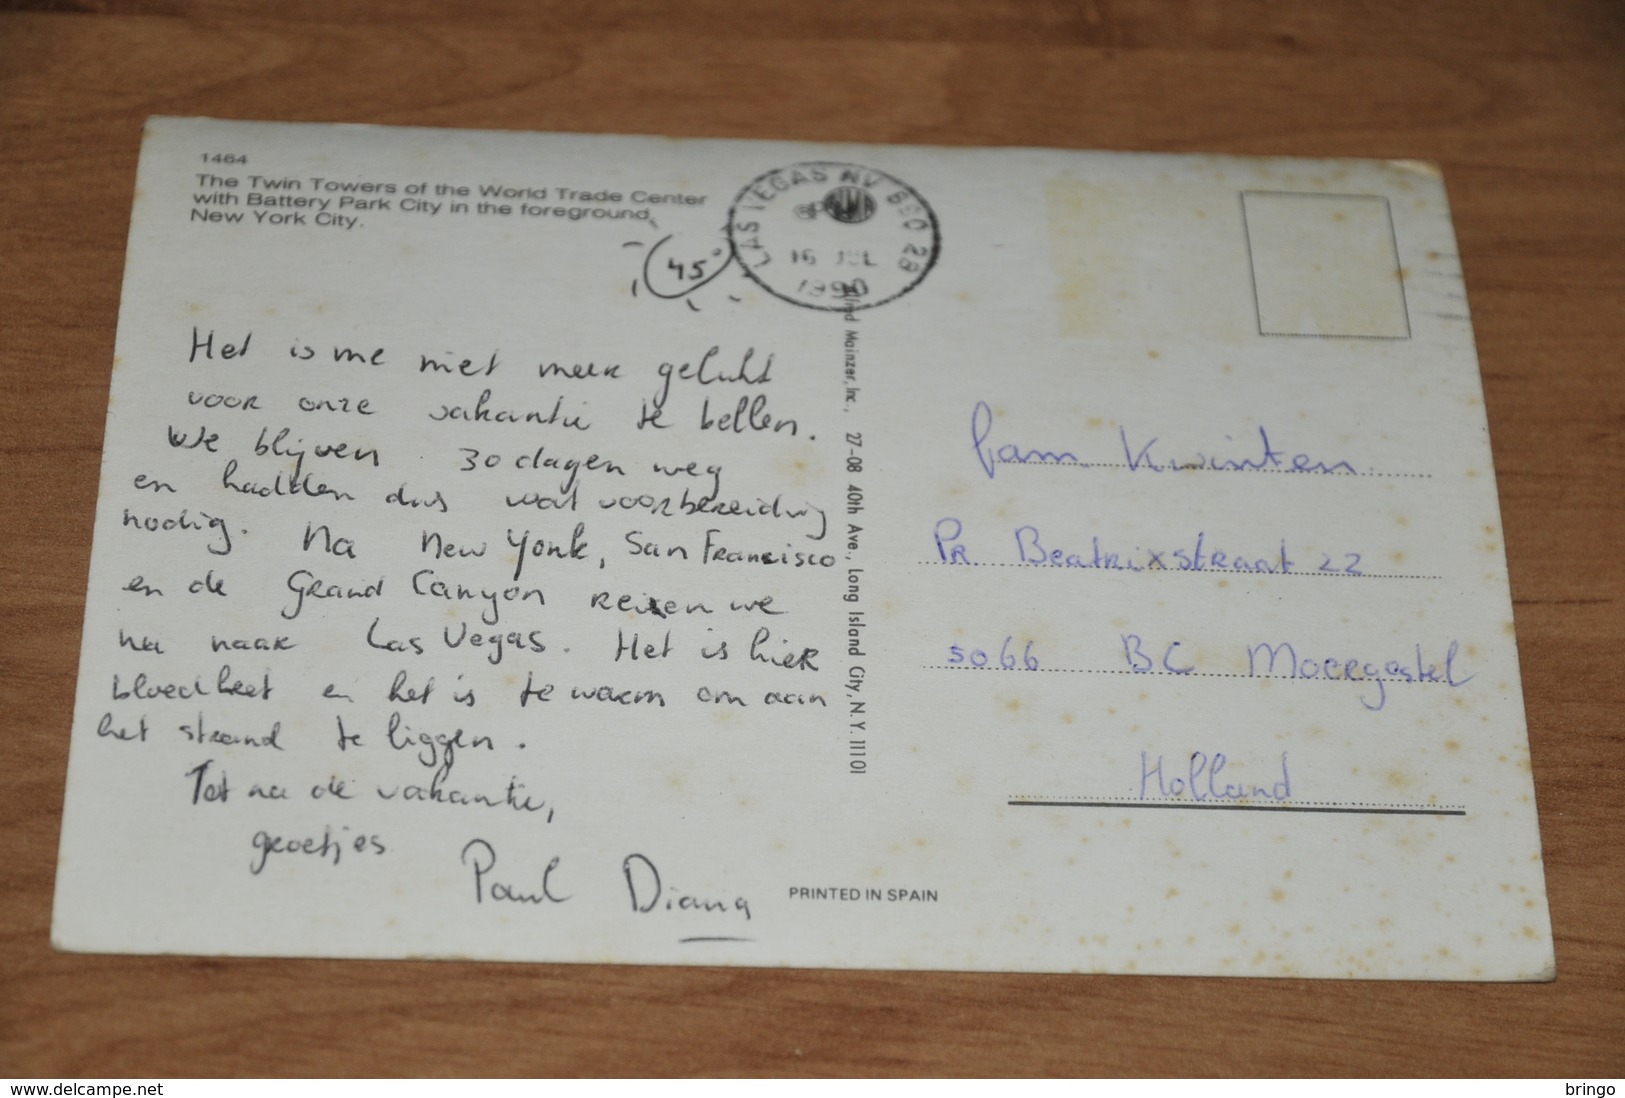 1464
The Twin Towers of the World Trade Center
with Battery Park City in the foreground,
New York City.
LAS VEGAS NV 890 28
16 JUL
1990
45°
Het is me niet meer gelukt
voor onze vakantie te bellen.
We blijven 30 dagen weg
en hadden dus wat voorbereiding
nodig. Na New York, San Francisco
en de Grand Canyon reizen we
nu naar Las Vegas. Het is hier
bloedheet en het is te warm om aan
het strand te liggen.
Tot na de vakantie,
groetjes
Paul Diana
Alfred Mainzer, Inc., 27-08 40th Ave., Long Island City, N.Y. 11101
PRINTED IN SPAIN
fam Kwinten
Pr Beatrixstraat 22
5066 BC Moergestel
Holland
www.delcampe.net
bringo